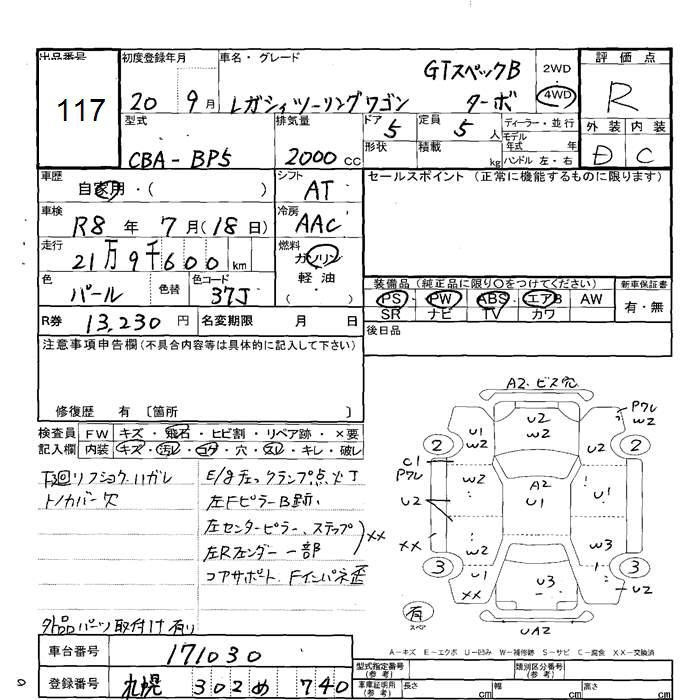 出品番号 初度登録年月 車名・グレード 評価点
117
20 9月 レガシィツーリングワゴン GTスペックB ターボ 2WD 4WD R
型式 排気量 ドア 5 定員 5人 ディーラー・並行 外装 内装
CBA-BP5 2000cc 形状 積載 kg モデル年式 年 ハンドル 左・右 D C
車歴 自家用・( ) シフト AT セールスポイント (正常に機能するものに限ります)
車検 R8年 7月(18日) 冷房 AAC
走行 21万9千600km 燃料 ガソリン 軽油 ( )
色 パール 色替 色コード 37J 装備品(純正品に限り○をつけてください) 新車保証書
PS・PW・ABS・エアB AW 有・無
SR ナビ TV カワ
R券 13,230円 名変期限 月 日 後日品
注意事項申告欄(不具合内容等は具体的に記入して下さい)
修復歴 有 〔箇所 〕
検査員記入欄 FW キズ・飛石・ヒビ割・リペア跡・×要
内装 キズ・汚レ・コゲ・穴・スレ・キレ・破レ
下回リフショク、ハガレ
トノカバー欠
E/gチェックランプ点灯
左Fピラー B跡
左センターピラー、ステップ
左Rフェンダー 一部 XX
コアサポート、Fインパネ歪
外品パーツ取付け有り
A2. ビス穴
U2
W2
U1
W2
PワレW2
2
2
C1
Pワレ
U2
W2
A2
U1
U2
U1
XX
W2
W3
3
3
U1
XX
U3
U2
有
スペア
UA2
A-キズ E-エクボ U-凹み W-補修跡 S-サビ C-腐食 XX-交換済
車台番号 171030
登録番号 札幌 302 め 740
型式指定番号(参考) 類別区分番号(参考)
車庫証明用(参考) 長さ cm 幅 cm 高さ cm